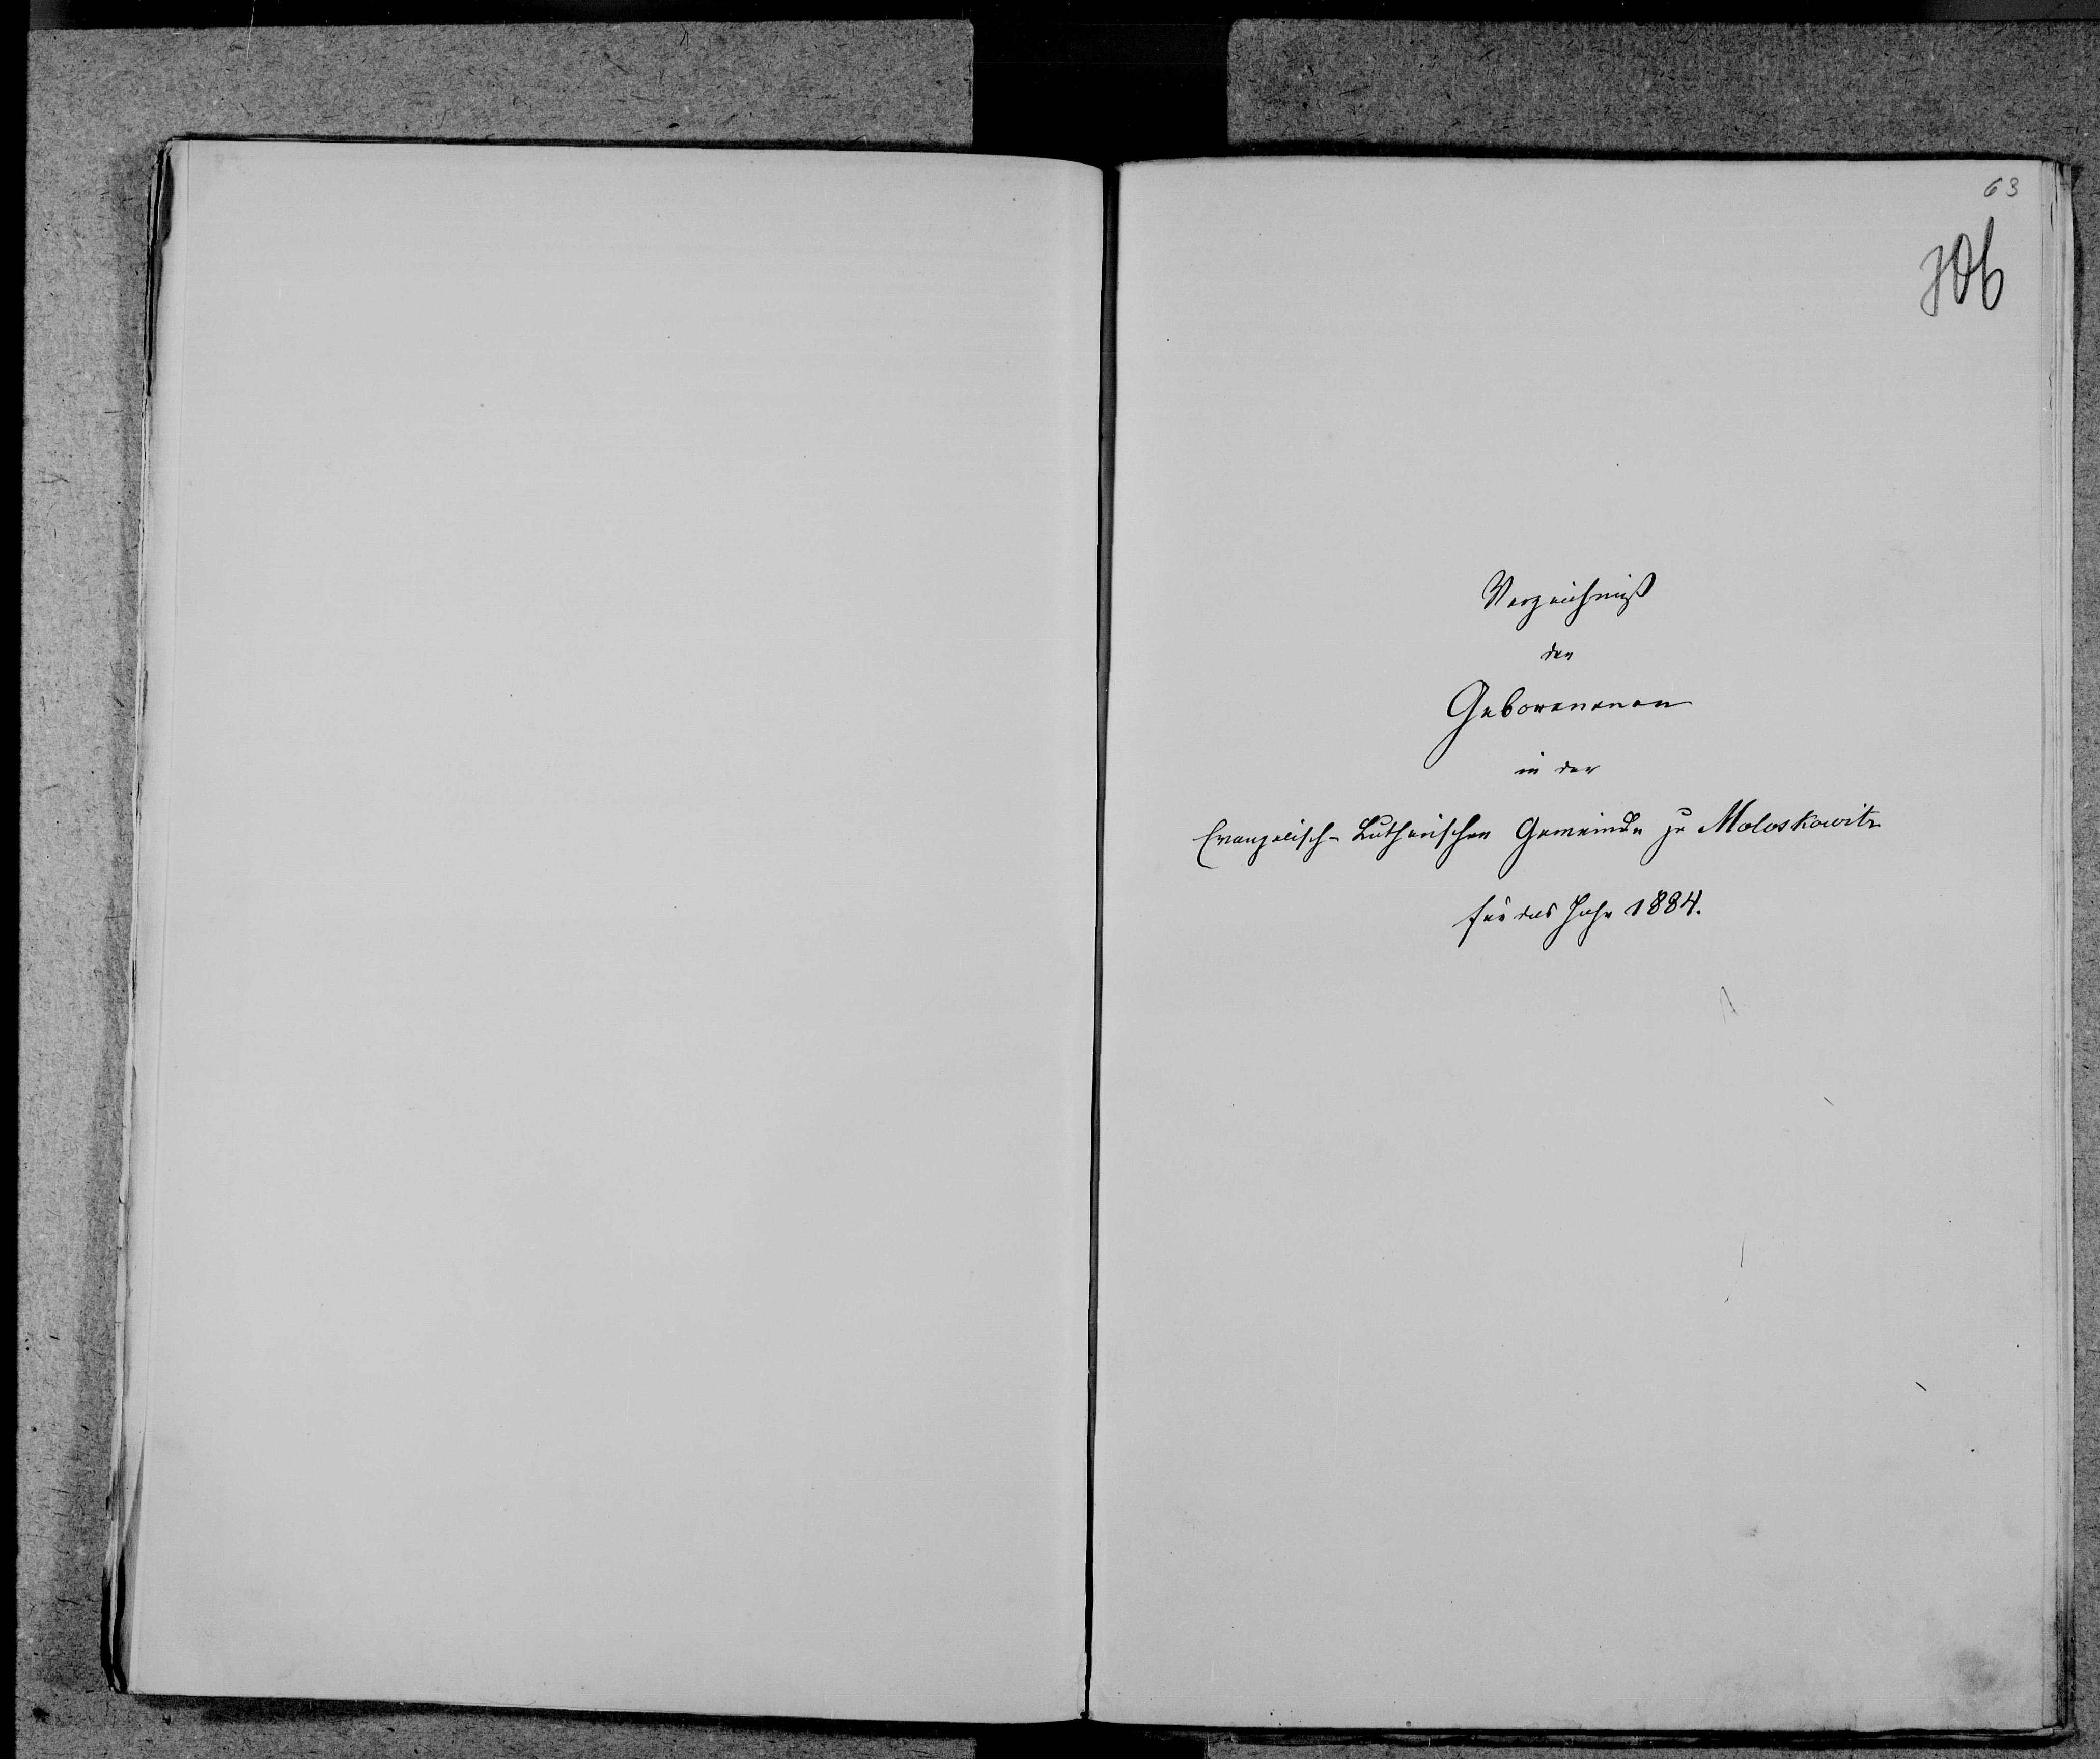 63
106
Verzeichniß
der
Geborenenen
in der
Evangelisch-Lutherischen Gemeinde zu Moloskowitz
für das Jahr 1884.